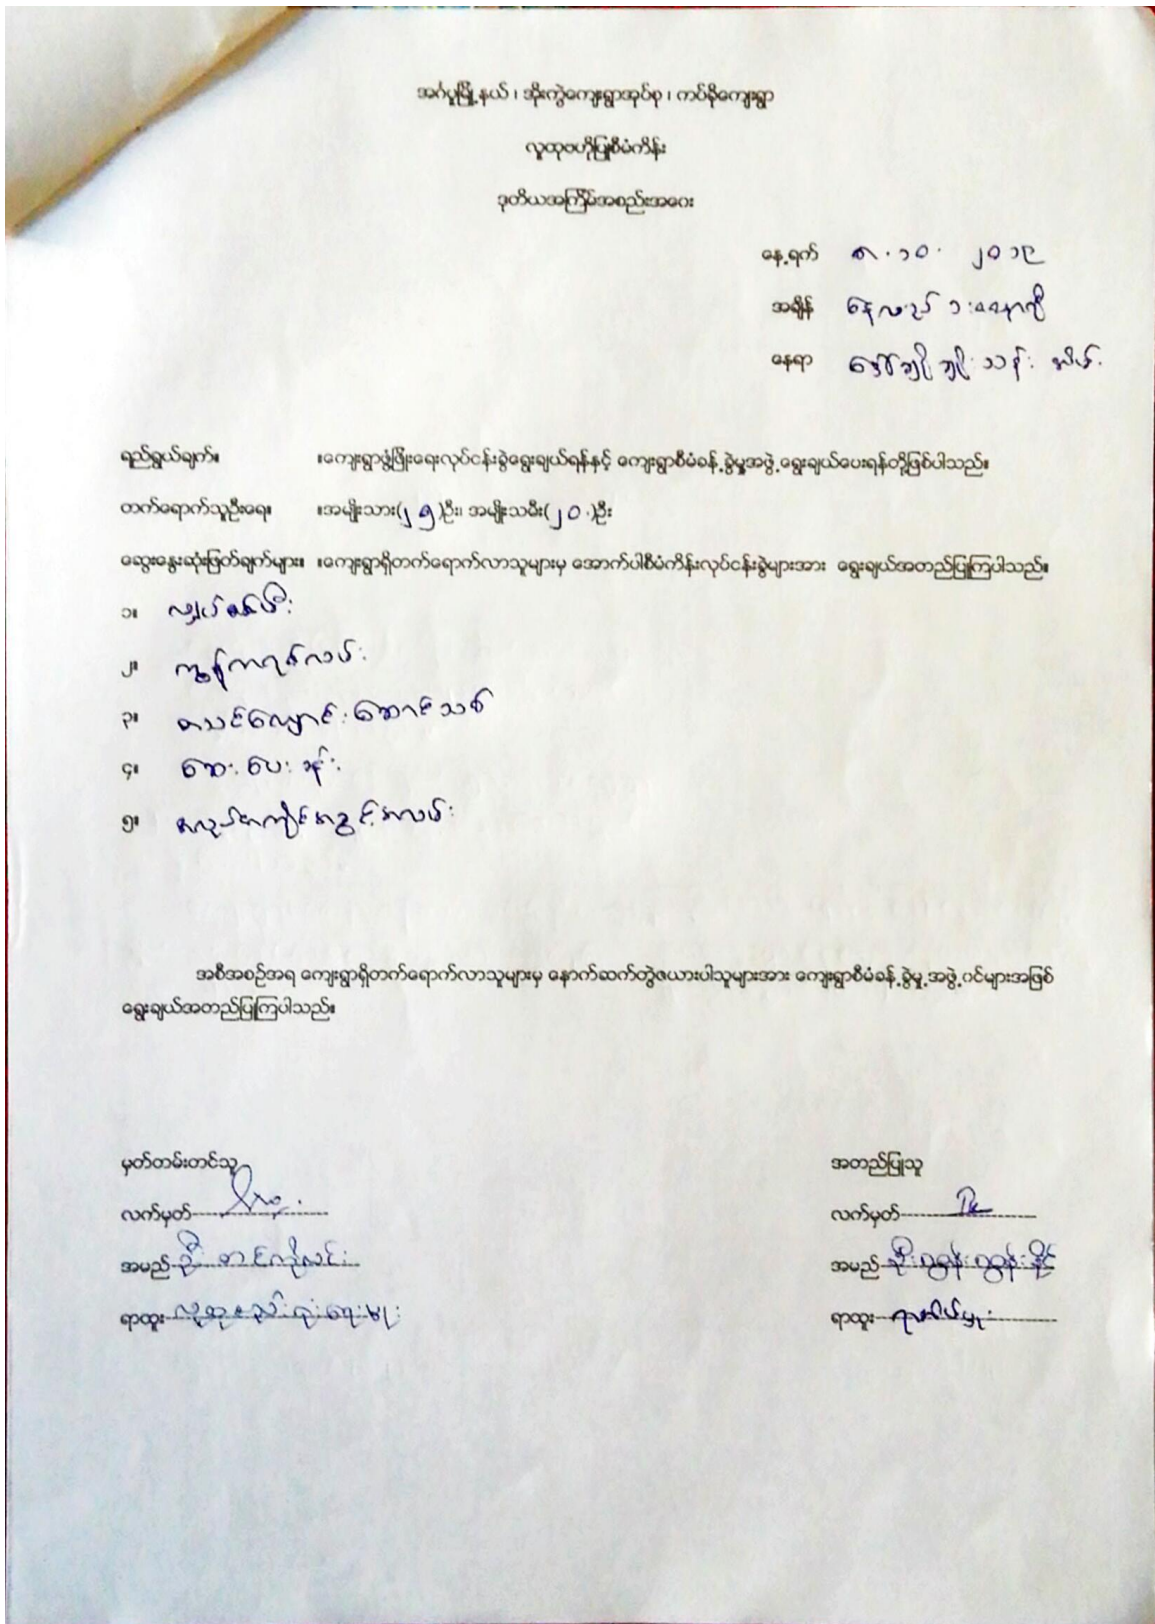 အင်္ဂပူမြို့နယ် ၊ အိုးကွဲကျေးရွာအုပ်စု ၊ ကပ်ခိုကျေးရွာ
လူထုဗဟိုပြုစီမံကိန်း
ဒုတိယအကြိမ်အစည်းအဝေး
နေ့ရက် ၈.၁၀. ၂၀၁၉
အချိန် နေ့လည် ၁:၀၀နာရီ
နေရာ ဒေါ်ချိုချိုသန်း အိမ်.
ရည်ရွယ်ချက်။ ။ကျေးရွာဖွံ့ဖြိုးရေးလုပ်ငန်းခွဲရွေးချယ်ရန်နှင့် ကျေးရွာစီမံခန့်ခွဲမှုအဖွဲ့ရွေးချယ်ပေးရန်တို့ဖြစ်ပါသည်။
တက်ရောက်သူဦးရေ။ ။အမျိုးသား(၂၅)ဦး၊ အမျိုးသမီး(၂၀.)ဦး
ဆွေးနွေးဆုံးဖြတ်ချက်များ။ ။ကျေးရွာရှိတက်ရောက်လာသူများမှ အောက်ပါစီမံကိန်းလုပ်ငန်းခွဲများအား ရွေးချယ်အတည်ပြုကြပါသည်။
၁။ လျှပ်စစ်မီး
၂။ ကွန်ကရစ်လမ်း
၃။ စာသင်ကျောင်းဆောင်သစ်
၄။ ဆေးပေးခန်း
၅။ အလုပ်အကိုင်အခွင့်အလမ်း
အစီအစဉ်အရ ကျေးရွာရှိတက်ရောက်လာသူများမှ နောက်ဆက်တွဲဇယားပါသူများအား ကျေးရွာစီမံခန့်ခွဲမှု့အဖွဲ့ဝင်များအဖြစ်
ရွေးချယ်အတည်ပြုကြပါသည်။
မှတ်တမ်းတင်သူ အတည်ပြုသူ
လက်မှတ် လက်မှတ်
အမည် ဦး အမည် ဦး
ရာထူး လူထုစည်းရုံးရေးမှူး ရာထူး ရာအိမ်မှူး